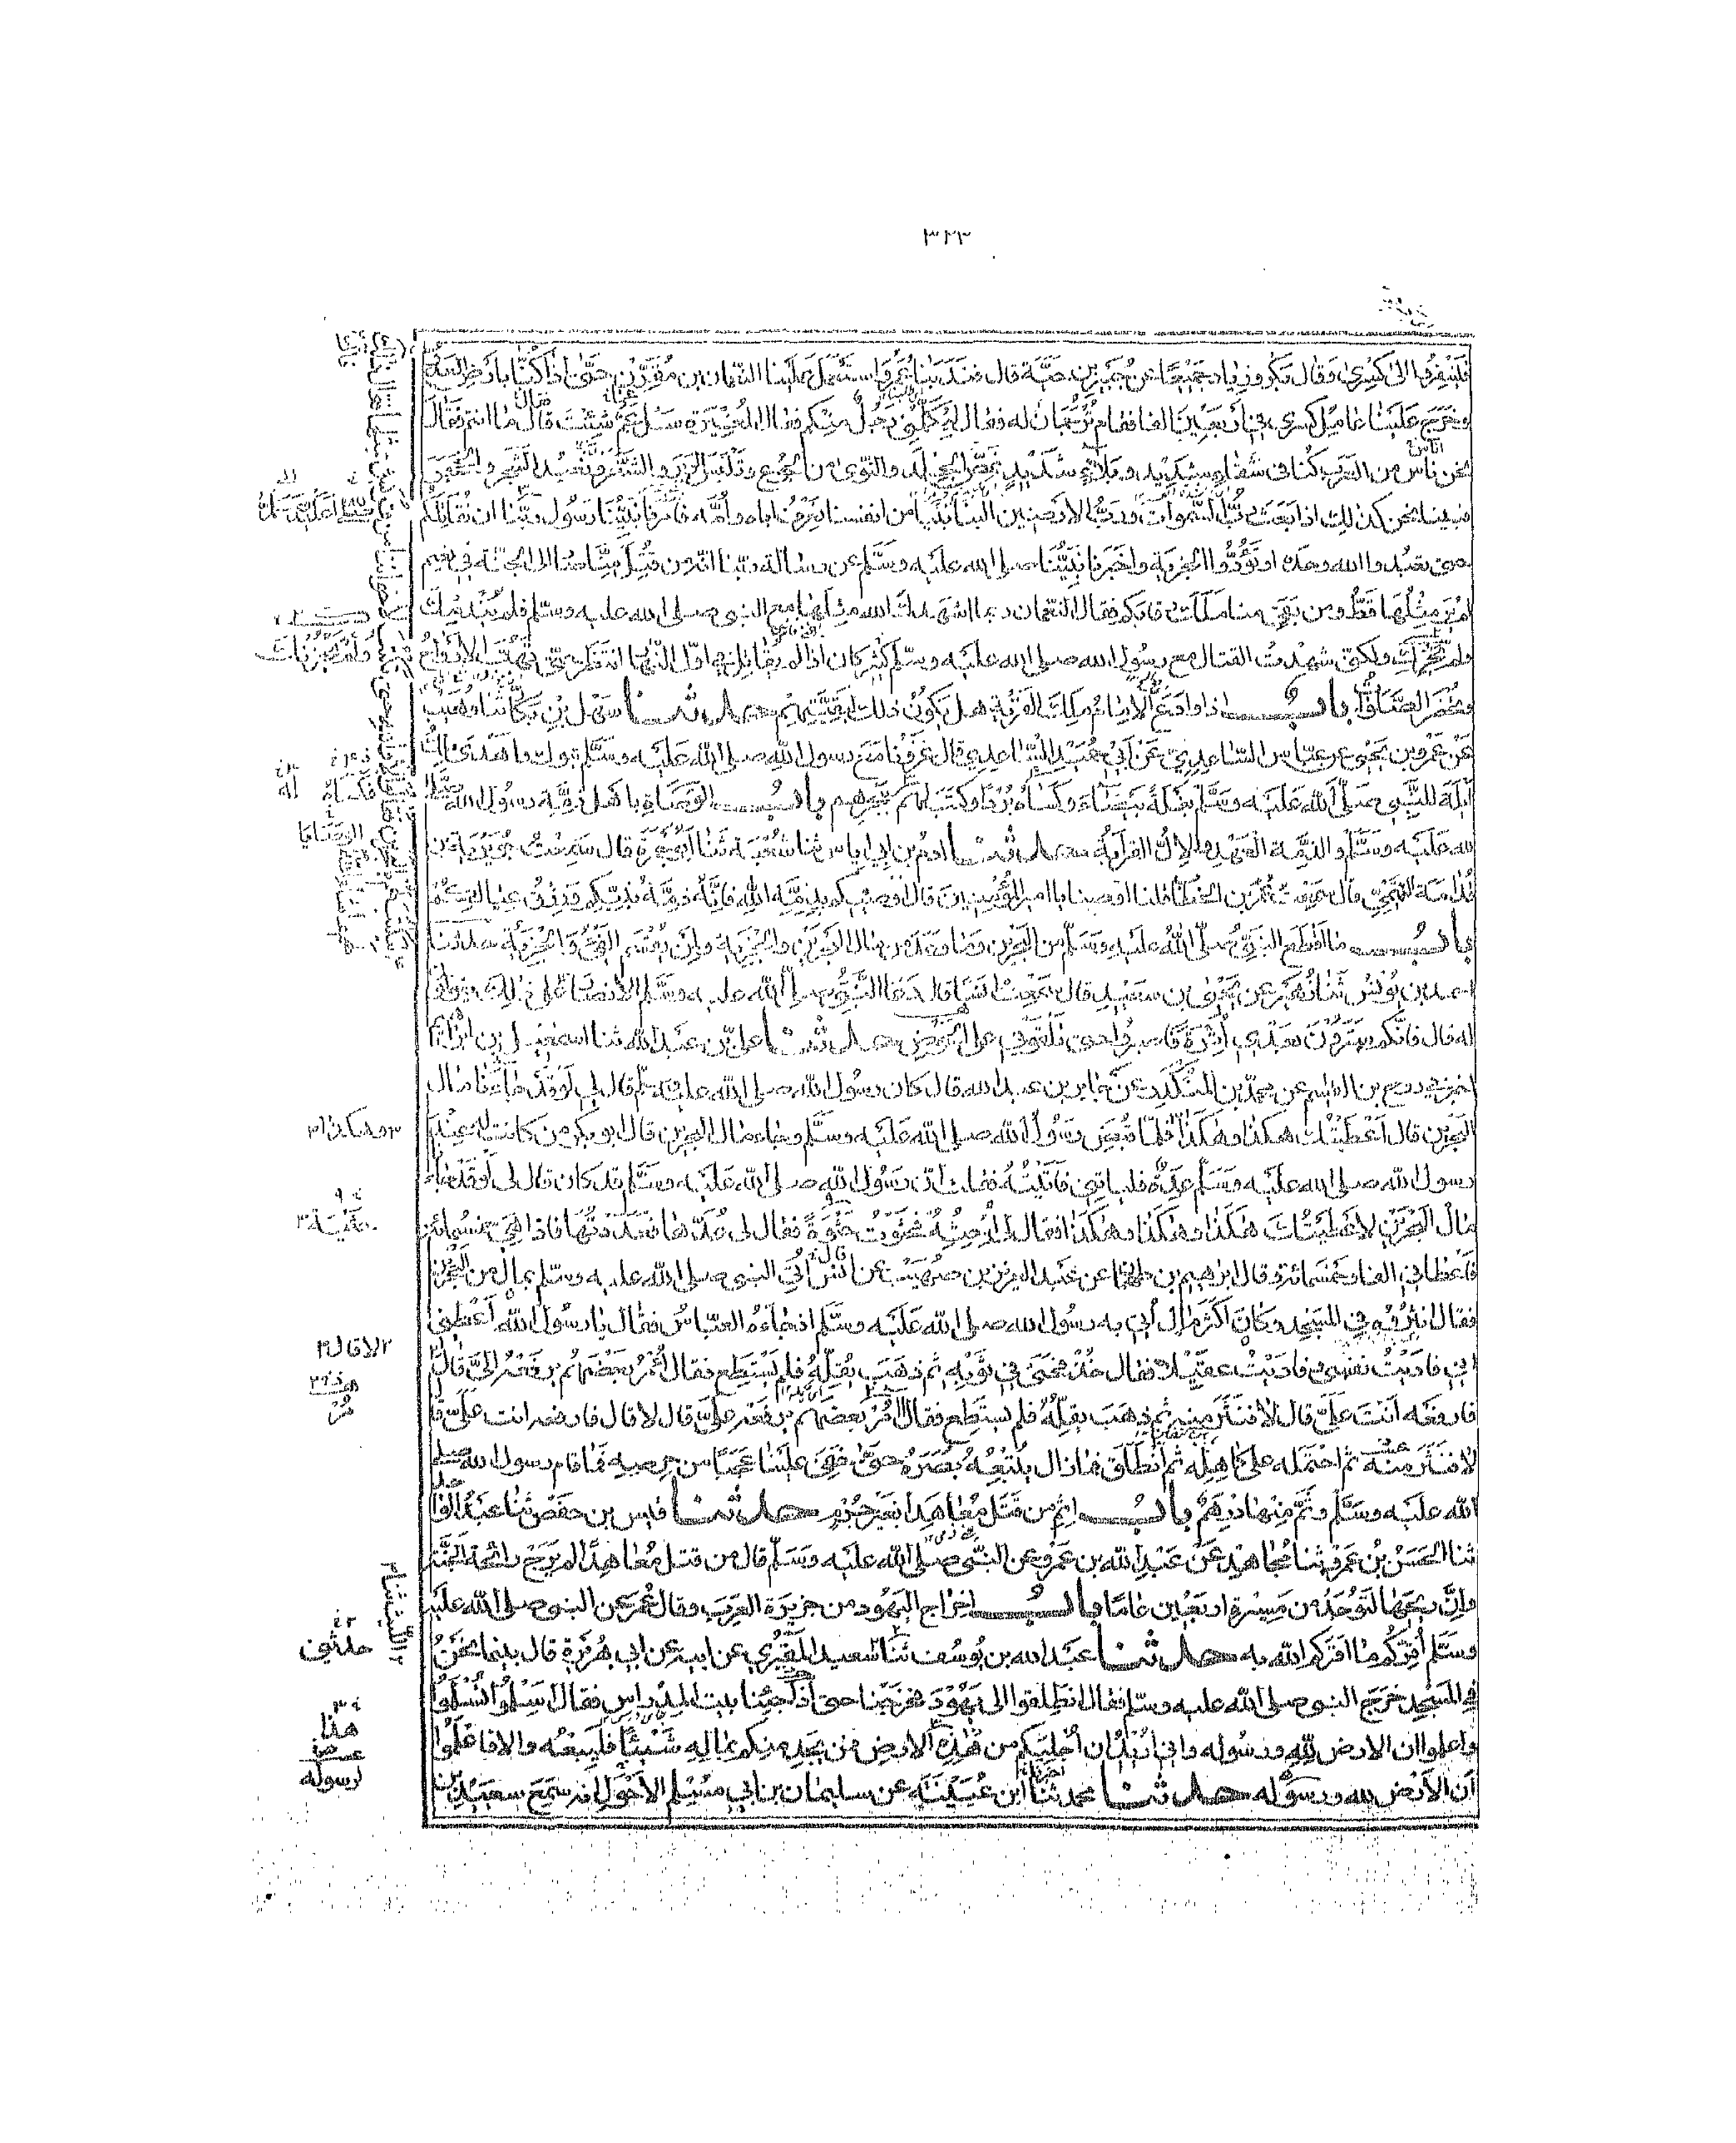 ٣٢٣
فلينفروا الى كسرى وقال بكر وزياد جميعا عن جبير بن حية قال فندبنا عمر واستعمل علينا النعمان بن مقرن حتى اذا كنا بارض العدو
وخرج علينا عامل كسرى في اربعين الفا فقام ترجمان له فقال ليكلمني رجل منكم فقال المغيرة سل عم شئت قال ما انتم فقال
نحن ناس من العرب كنا في شقاء شديد وبلاء شديد نمص الجلد والنوى من الجوع ونلبس الوبر والشعر ونعبد الشجر والحجر
فبينا نحن كذلك اذ بعث رب السموات ورب الارضين الينا نبيا من انفسنا نعرف اباه وامه فامرنا نبينا رسول ربنا ان نقاتلكم
حتى تعبدوا الله وحده او تؤدوا الجزية واخبرنا نبينا صلى الله عليه وسلم عن رسالة ربنا انه من قتل منا صار الى الجنة في نعيم
لم ير مثلها قط ومن بقي منا ملك رقابكم فقال النعمان ربما اشهدك الله مثلها مع النبي صلى الله عليه وسلم فلم يندمك
ولم يخزك ولكني شهدت القتال مع رسول الله صلى الله عليه وسلم كثير كان اذا لم يقاتل في اول النهار انتظر حتى تهب الارواح
وتحضر الصلوات باب اذا وادع الامام ملك القرية هل يكون ذلك لبقيتهم حدثنا سهل بن بكار ثنا وهيب
عن عمرو بن يحيى عن عباس الساعدي عن ابي حميد الساعدي قال غزونا مع رسول الله صلى الله عليه وسلم تبوك واهدى ملك
ايلة للنبي صلى الله عليه وسلم بغلة بيضاء وكساه بردا وكتب لهم ببحرهم باب الوصاة باهل ذمة رسول الله صلى
الله عليه وسلم والذمة العهد والال القرابة حدثنا ادم بن ابي اياس ثنا شعبة ثنا ابو جمرة قال سمعت جويرية بن
قدامة التميمي قال سمعت عمر بن الخطاب قلنا اوصنا يا امير المؤمنين قال اوصيكم بذمة الله فانه ذمة نبيكم ورزق عيالكم
باب ما اقطع النبي صلى الله عليه وسلم من البحرين وما وعد من مال البحرين والجزية ولمن يقسم الفئ والجزية حدثنا
احمد بن يونس ثنا زهير عن يحيى بن سعيد قال سمعت انسا قال دعا النبي صلى الله عليه وسلم الانصار
له قال فانكم سترون بعدي اثرة فاصبروا حتى تلقوني على الحوض حدثنا علي بن عبد الله ثنا اسمعيل بن ابراهيم
اخبرني روح بن القاسم عن محمد بن المنكدر عن جابر بن عبد الله قال كان رسول الله صلى الله عليه وسلم قال لي لو قد جاءنا مال
البحرين قال اعطيتك هكذا وهكذا فلما قبض رسول الله صلى الله عليه وسلم وجاء مال البحرين قال ابو بكر من كانت له عند
رسول الله صلى الله عليه وسلم عدة فلياتني فاتيته فقلت ان رسول الله صلى الله عليه وسلم قد كان قال لي لو قد جاء
مال البحرين لاعطيتك هكذا وهكذا وهكذا فقال لي احثه فحثوت حثوة فقال لي عدها فعددتها فاذا هي خمسمائة
فاعطاني الفا وخمسمائة وقال ابرهيم بن طهمان عن عبد العزيز بن صهيب عن انس اتي النبي صلى الله عليه وسلم بمال من البحرين
فقال انثروه في المسجد وكان اكثر مال اتي به رسول الله صلى الله عليه وسلم اذ جاءه العباس فقال يا رسول الله اعطني
اني فاديت نفسي وفاديت عقيلا فقال خذ فحثى في ثوبه ثم ذهب يقله فلم يستطع فقال اؤمر بعضهم يرفعه الي قال لا قال
فارفعه انت علي قال لا فنثر منه ثم ذهب يقله فلم يستطع فقال اؤمر بعضهم يرفعه علي قال لا قال فارفعه انت علي قال
لا فنثر منه ثم احتمله على كاهله ثم انطلق فما زال يتبعه بصره حتى خفي علينا عجبا من حرصه فما قام رسول الله صلى
الله عليه وسلم وثم منها درهم باب اثم من قتل معاهدا بغير جرم حدثنا قيس بن حفص ثنا عبد الواحد
ثنا الحسن بن عمرو ثنا مجاهد عن عبد الله بن عمرو عن النبي صلى الله عليه وسلم قال من قتل معاهدا لم يرح رائحة الجنة
وان ريحها لتوجد من مسيرة اربعين عاما باب اخراج اليهود من جزيرة العرب وقال عمر عن النبي صلى الله عليه
وسلم اقركم ما اقركم الله به حدثنا عبد الله بن يوسف ثنا سعيد المقبري عن ابيه عن ابي هريرة قال بينما نحن
في المسجد خرج النبي صلى الله عليه وسلم فقال انطلقوا الى يهود فخرجنا حتى اذا جئنا بيت المدراس فقال اسلموا تسلموا
واعلموا ان الارض لله ورسوله واني اريد ان اجليكم من هذه الارض فمن يجد منكم بماله شيئا فليبعه والا فاعلموا
ان الارض لله ورسوله حدثنا محمد ثنا ابن عيينة عن سليمان بن ابي مسلم الاحول انه سمع سعيد بن
الوصايا
الليث
حدثني
هذا
لرسوله